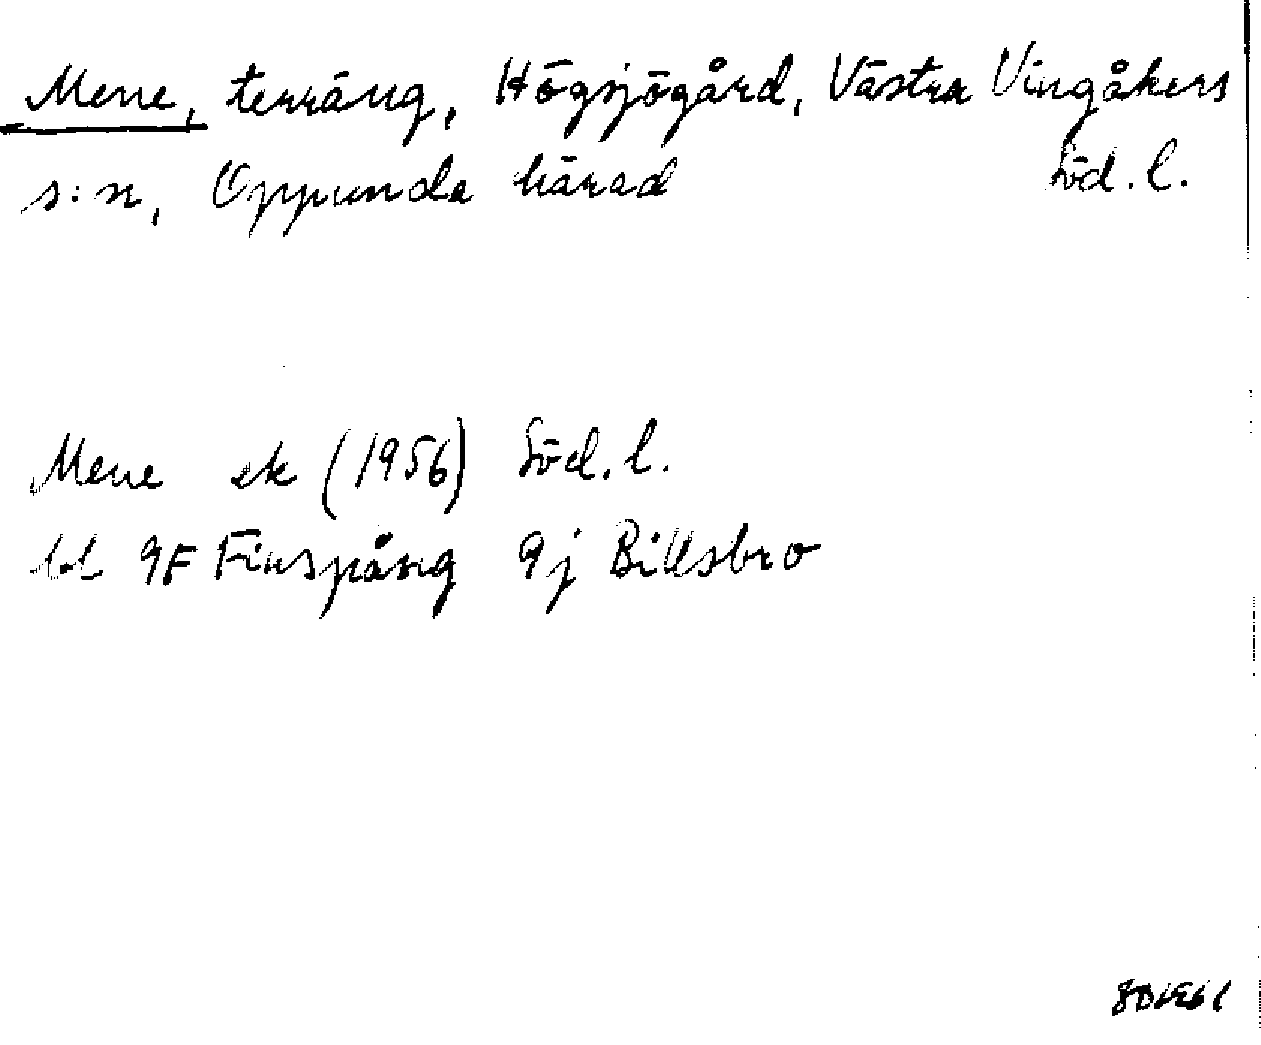 Mene, terräng, Högsjögård, Västra Vingåkers
s:n, Oppunda härad Söd. l.
Mene ek (1956) Söd. l.
bl 9F Finspång 9j Billsbro